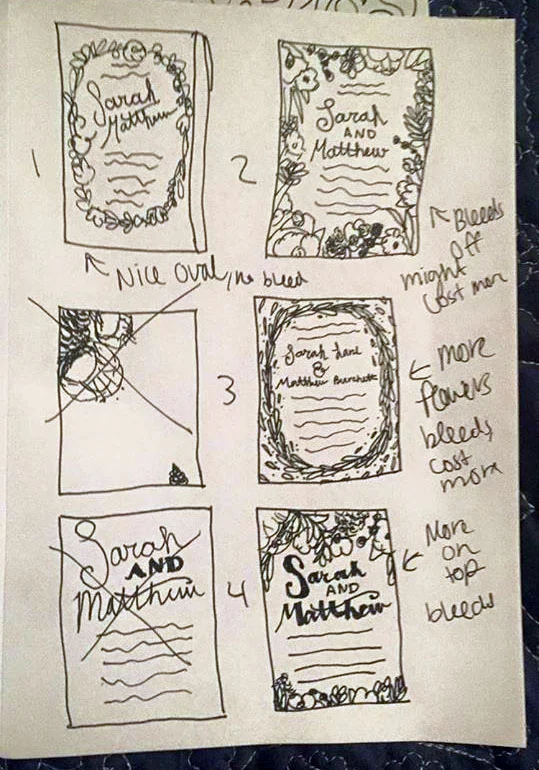 1
Sarah
Matthew
Nice oval, no bleed
2
Sarah
AND
Matthew
Bleeds
off
might
cost more
3
Sarah Lane
&
Matthew
more
flowers
bleeds
cost
more
Sarah
AND
Matthew
4
Sarah
AND
Matthew
More
on
top
bleeds